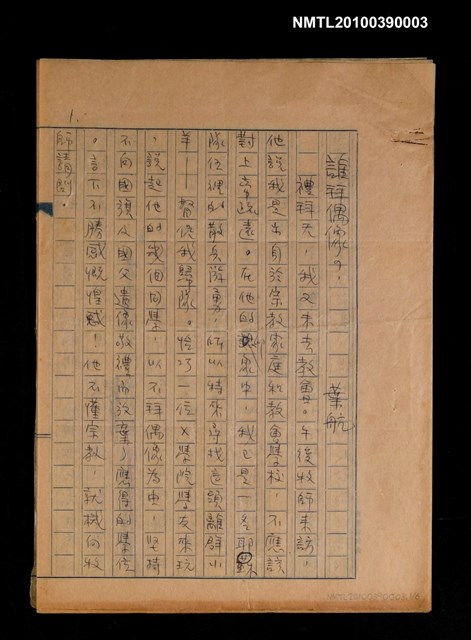 NMTL20100390003
1.
誰拜偶像？
葉航
一禮拜天，我又未去教會。午後牧師來訪，
他說我是出身於宗教家庭和教會學校，不應該
對上帝疏遠。在他的眼中，我也是一名耶穌
隊伍裡的散兵游勇，所以特來尋找這頭離群小
羊——督促我歸隊。恰巧一位X學院學友來玩
，說起他的幾個同學，以不拜偶像為由，堅持
不向國旗及國父遺像敬禮而放棄了應得的學位
。言下不勝感慨惶惑！他不懂宗教，就機向牧
師請問。
NMTL20100390003